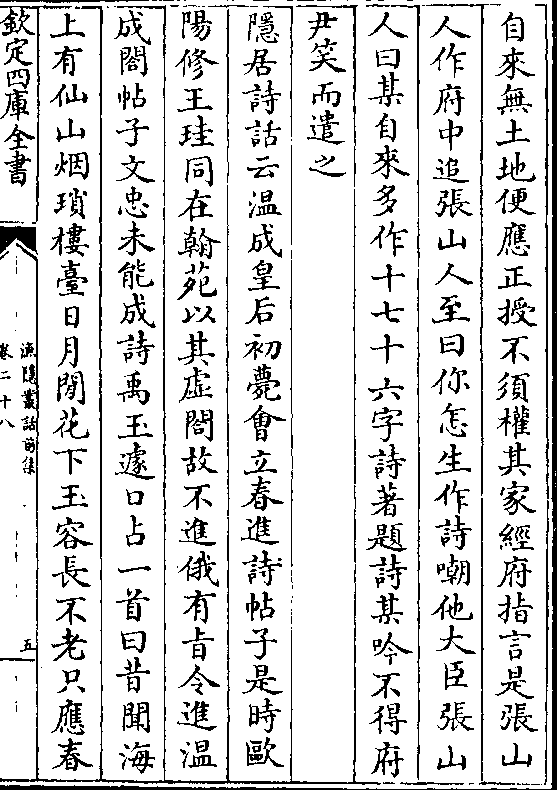 自來無土地便應正授不須權其家經府指言是張山
人作府中追張山人至曰你怎生作詩嘲他大臣張山
人曰某自來多作十七十六字詩著題詩某吟不得府
尹笑而遣之
隱居詩話云溫成皇后初薨會立春進詩帖子是時歐
陽修王珪同在翰苑以其虛閤故不進俄有旨令進溫
成閤帖子文忠未能成詩禹玉遽口占一首曰昔聞海
上有仙山烟瑣樓臺日月閒花下玉容長不老只應春
欽定四庫全書
漁隱叢話前集
卷二十八
五